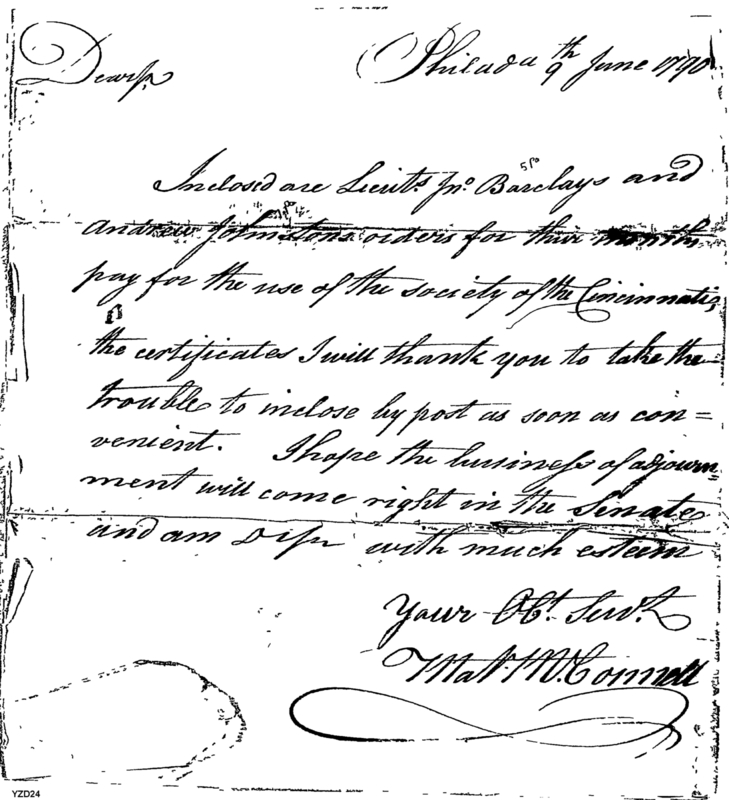 Dear Sr, Philada 9th June 1790
Inclosed are Lieuts Jno Barclays and
Andrew Johnstons orders for their month
pay for the use of the society of the Cincinnati,
the certificates I will thank you to take the
trouble to inclose by post as soon as con=
venient. I hope the business of adjourn
ment will come right in the Senate
and am D Sir with much esteem
Your Obt. Servt.
Mat. McConnell
YZD24